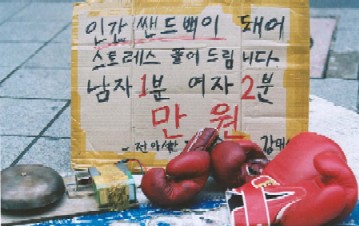 인간 쌘드백이 돼어
스트레스 풀어 드립니다
남자 1분 여자 2분
만 원